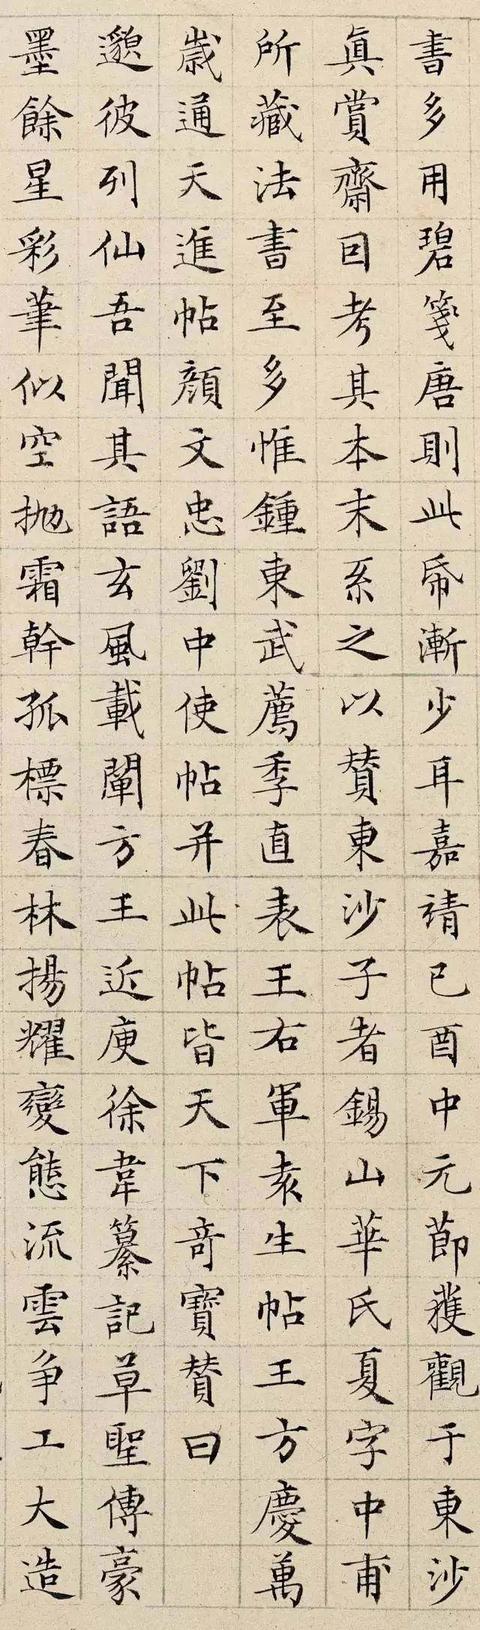 書多用碧箋唐則此帋漸少耳嘉靖已酉中元節獲觀于東沙
真賞齋因考其本末系之以贊東沙子者錫山華氏夏字中甫
所藏法書至多惟鍾東武薦季直表王右軍袁生帖王方慶萬
歲通天進帖顏文忠劉中使帖并此帖皆天下奇寶贊曰
邈彼列仙吾聞其語玄風載闡方王近庾徐韋纂記草聖傳豪
墨餘星彩筆似空拋霜幹孤標春林揚耀變態流雲争工大造